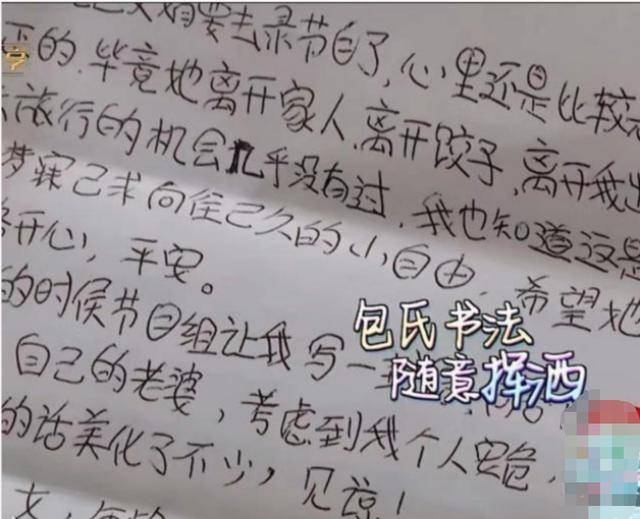 要去录节目了,心里还是比较
的.毕竟她离开家人,离开饺子,离开我
旅行的机会几乎没有过.我也知道这是
梦寐己求向往己久的小自由.希望她
开心,平安。
的时候节目组让我写一
自己的老婆,考虑到我个人安危,
的话美化了不少,见谅!
包氏书法
随意挥洒